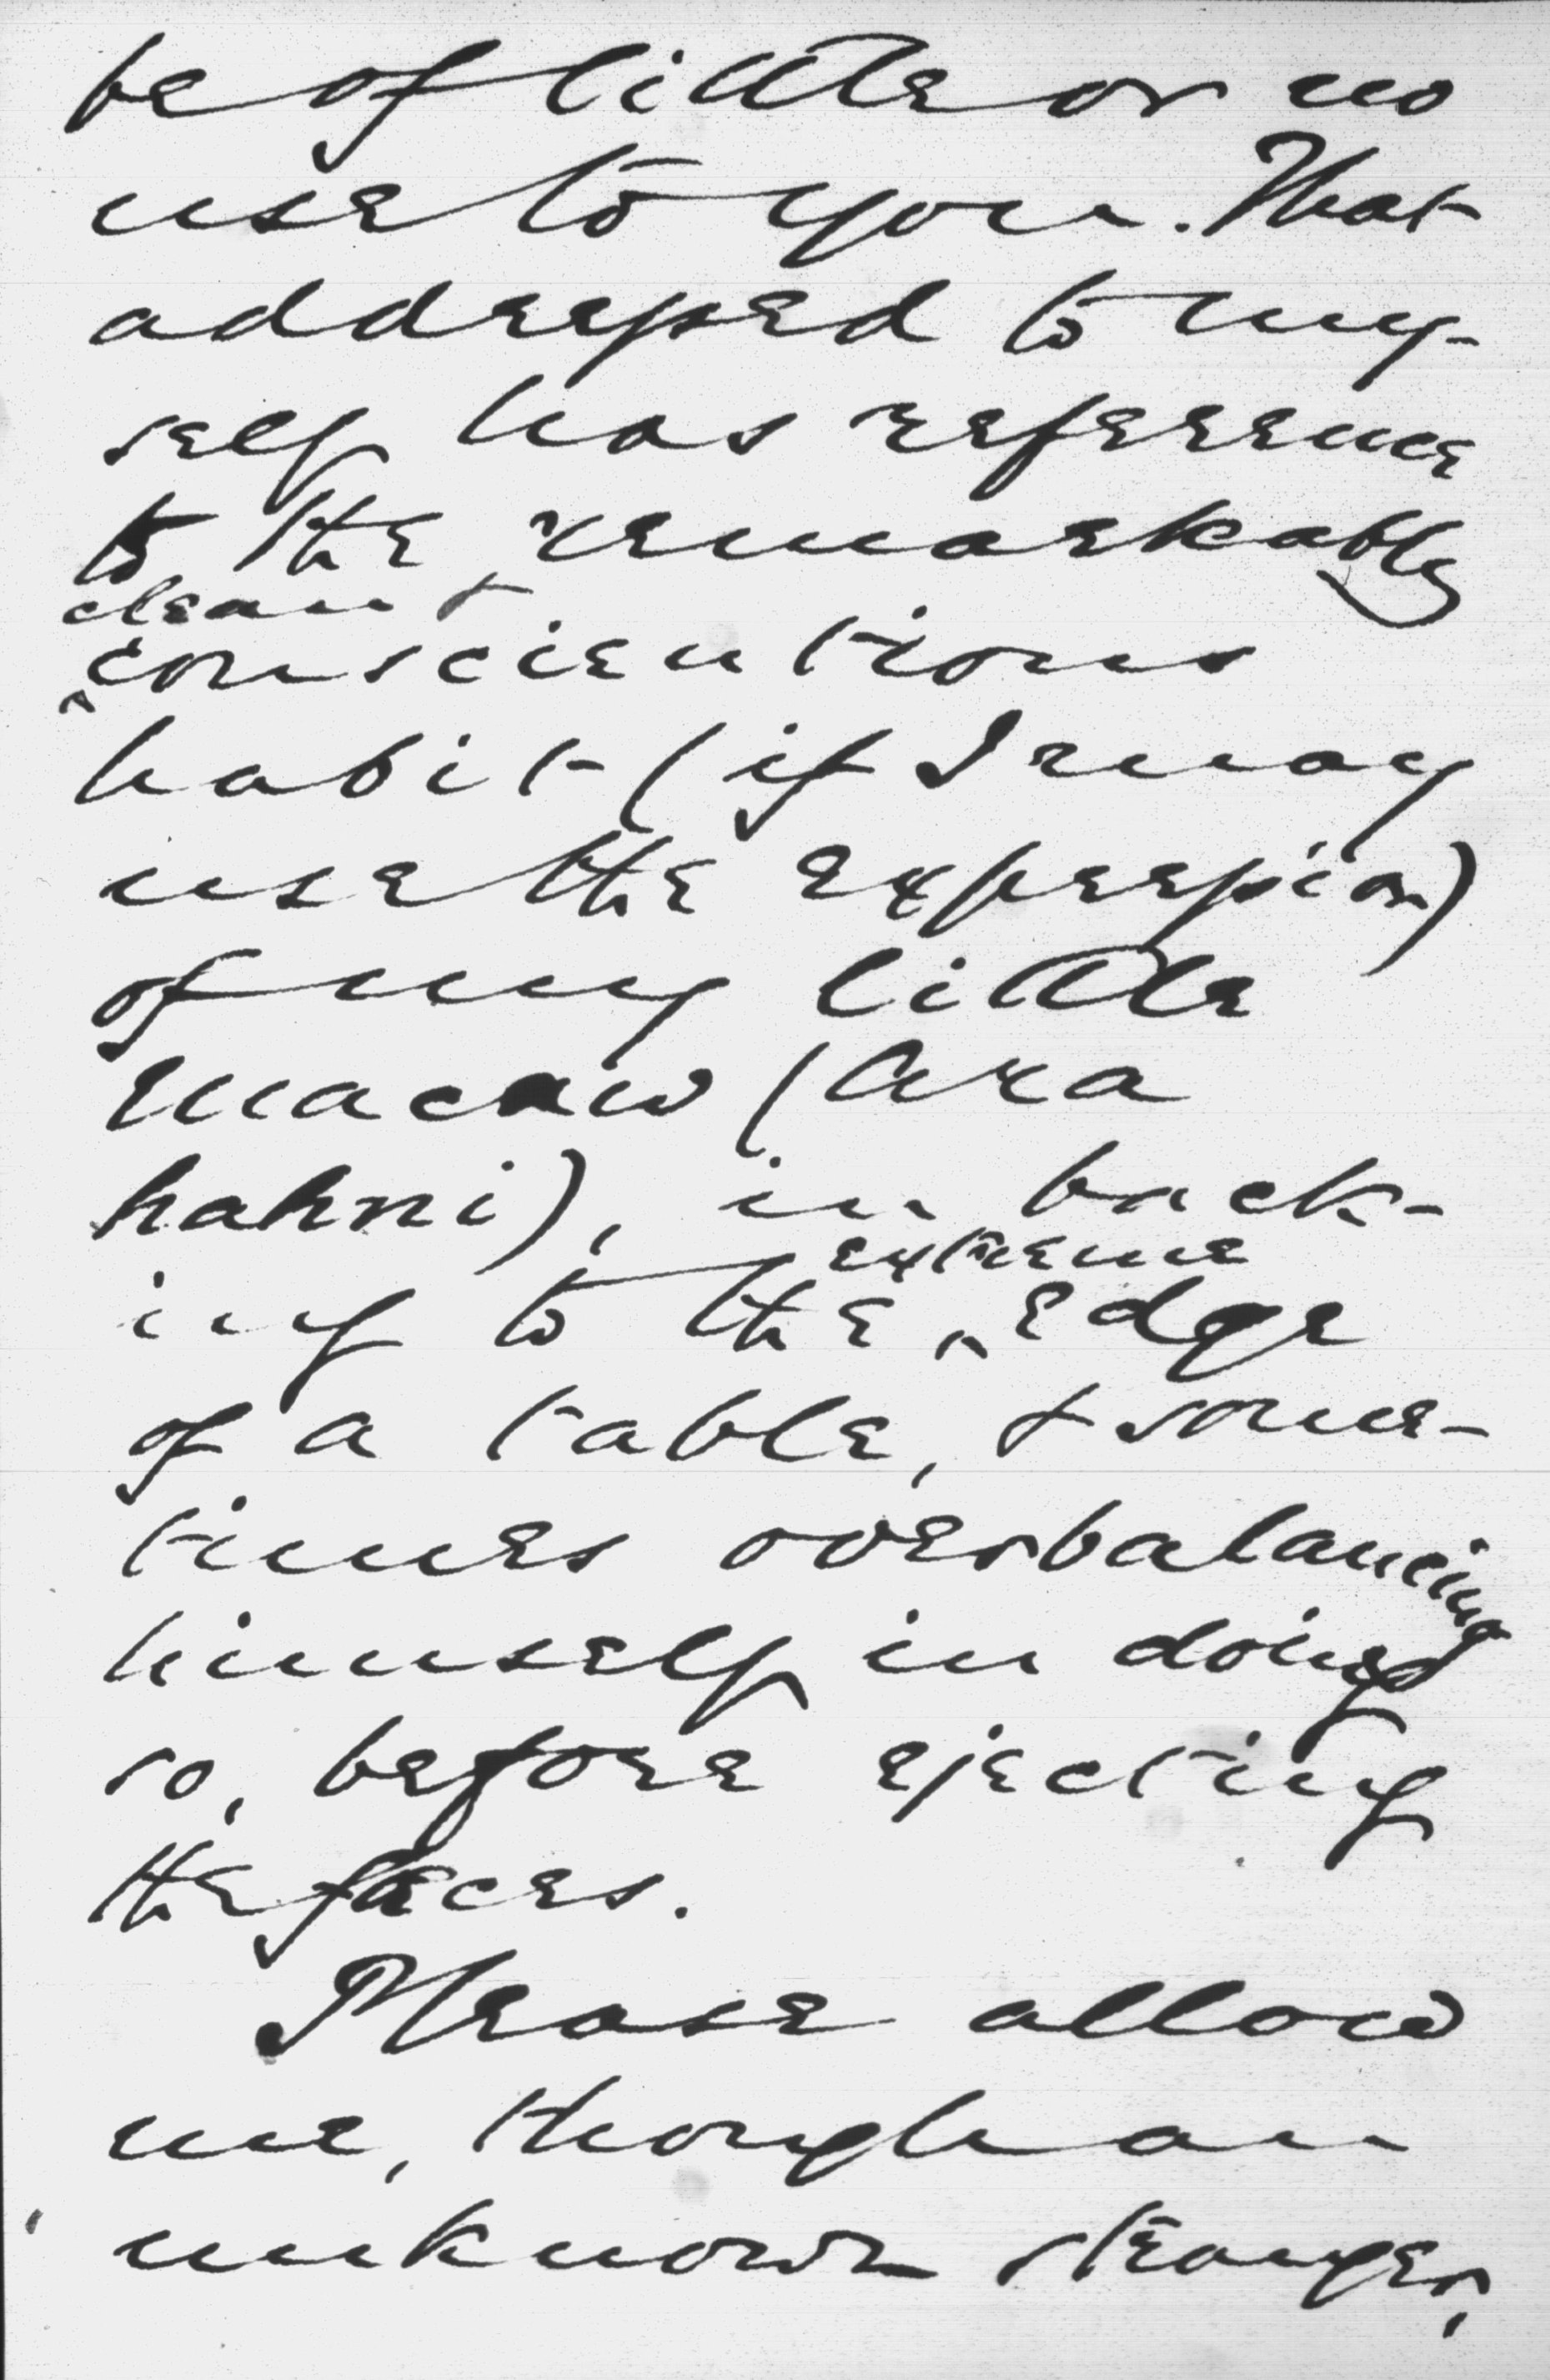 be of little or no
use to you. That
addressed to my-
self has reference
to the remarkably
clean &
^conscientious
habit (if I may
use the expression)
of my little
macaw (Ara
hahni), in back-
extreme
ing to the ^ edge
of a table, & some-
times overbalancing
himself in doing
so, before ejecting
the fæces.
Please allow
me, though an
unknown stranger,